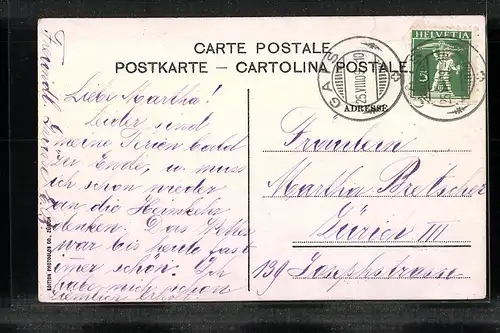 CARTE POSTALE
POSTKARTE – CARTOLINA POSTALE
HELVETIA
5
GAIS
ADRESSE
Liebe Martha!
Leider sind
meine Ferien bald
zu Ende, u. muss
ich schon wieder
an die Heimkehr
denken. Das Wetter
war bis heute fast
imer schön. Ich
habe mich schon
ziemlich erholt
Fräulein
Martha Bretscher
Zürich III
139 Josephstrasse
EDITION PHOTOGLOB CO., ZÜRICH